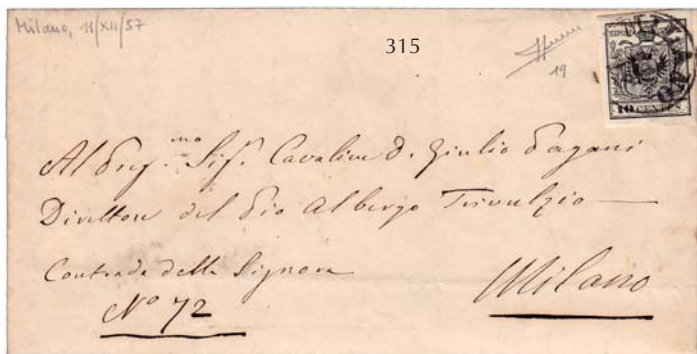 Milano, 11/XII/57
315
19
MILANO
10 CENTES.
Al Preg.mo Sig. Cavaliere D. Giulio Pagani
Direttore del Pio Albergo Trivulzio
Contrada della Signora
No 72
Milano